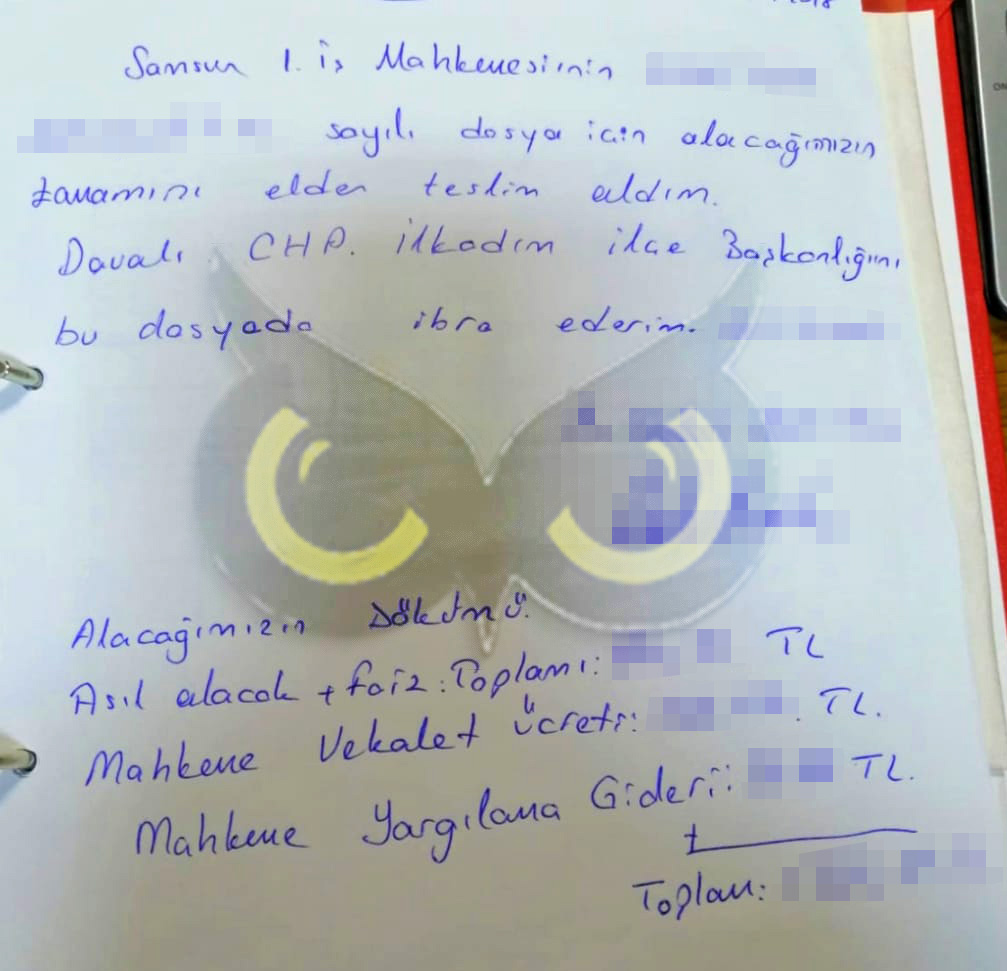 2018
Samsun 1. iş Mahkemesi'nin
sayılı dosya için alacağımızın
tamamını elden teslim aldım.
Davalı CHP. ilkadım ilçe Başkanlığını
bu dosyada ibra ederim.
Alacağımızın Dökümü.
Asıl alacak + faiz: Toplamı: TL
Mahkeme Vekalet ücreti: TL.
Mahkeme Yargılama Gideri: TL.
+
Toplam: